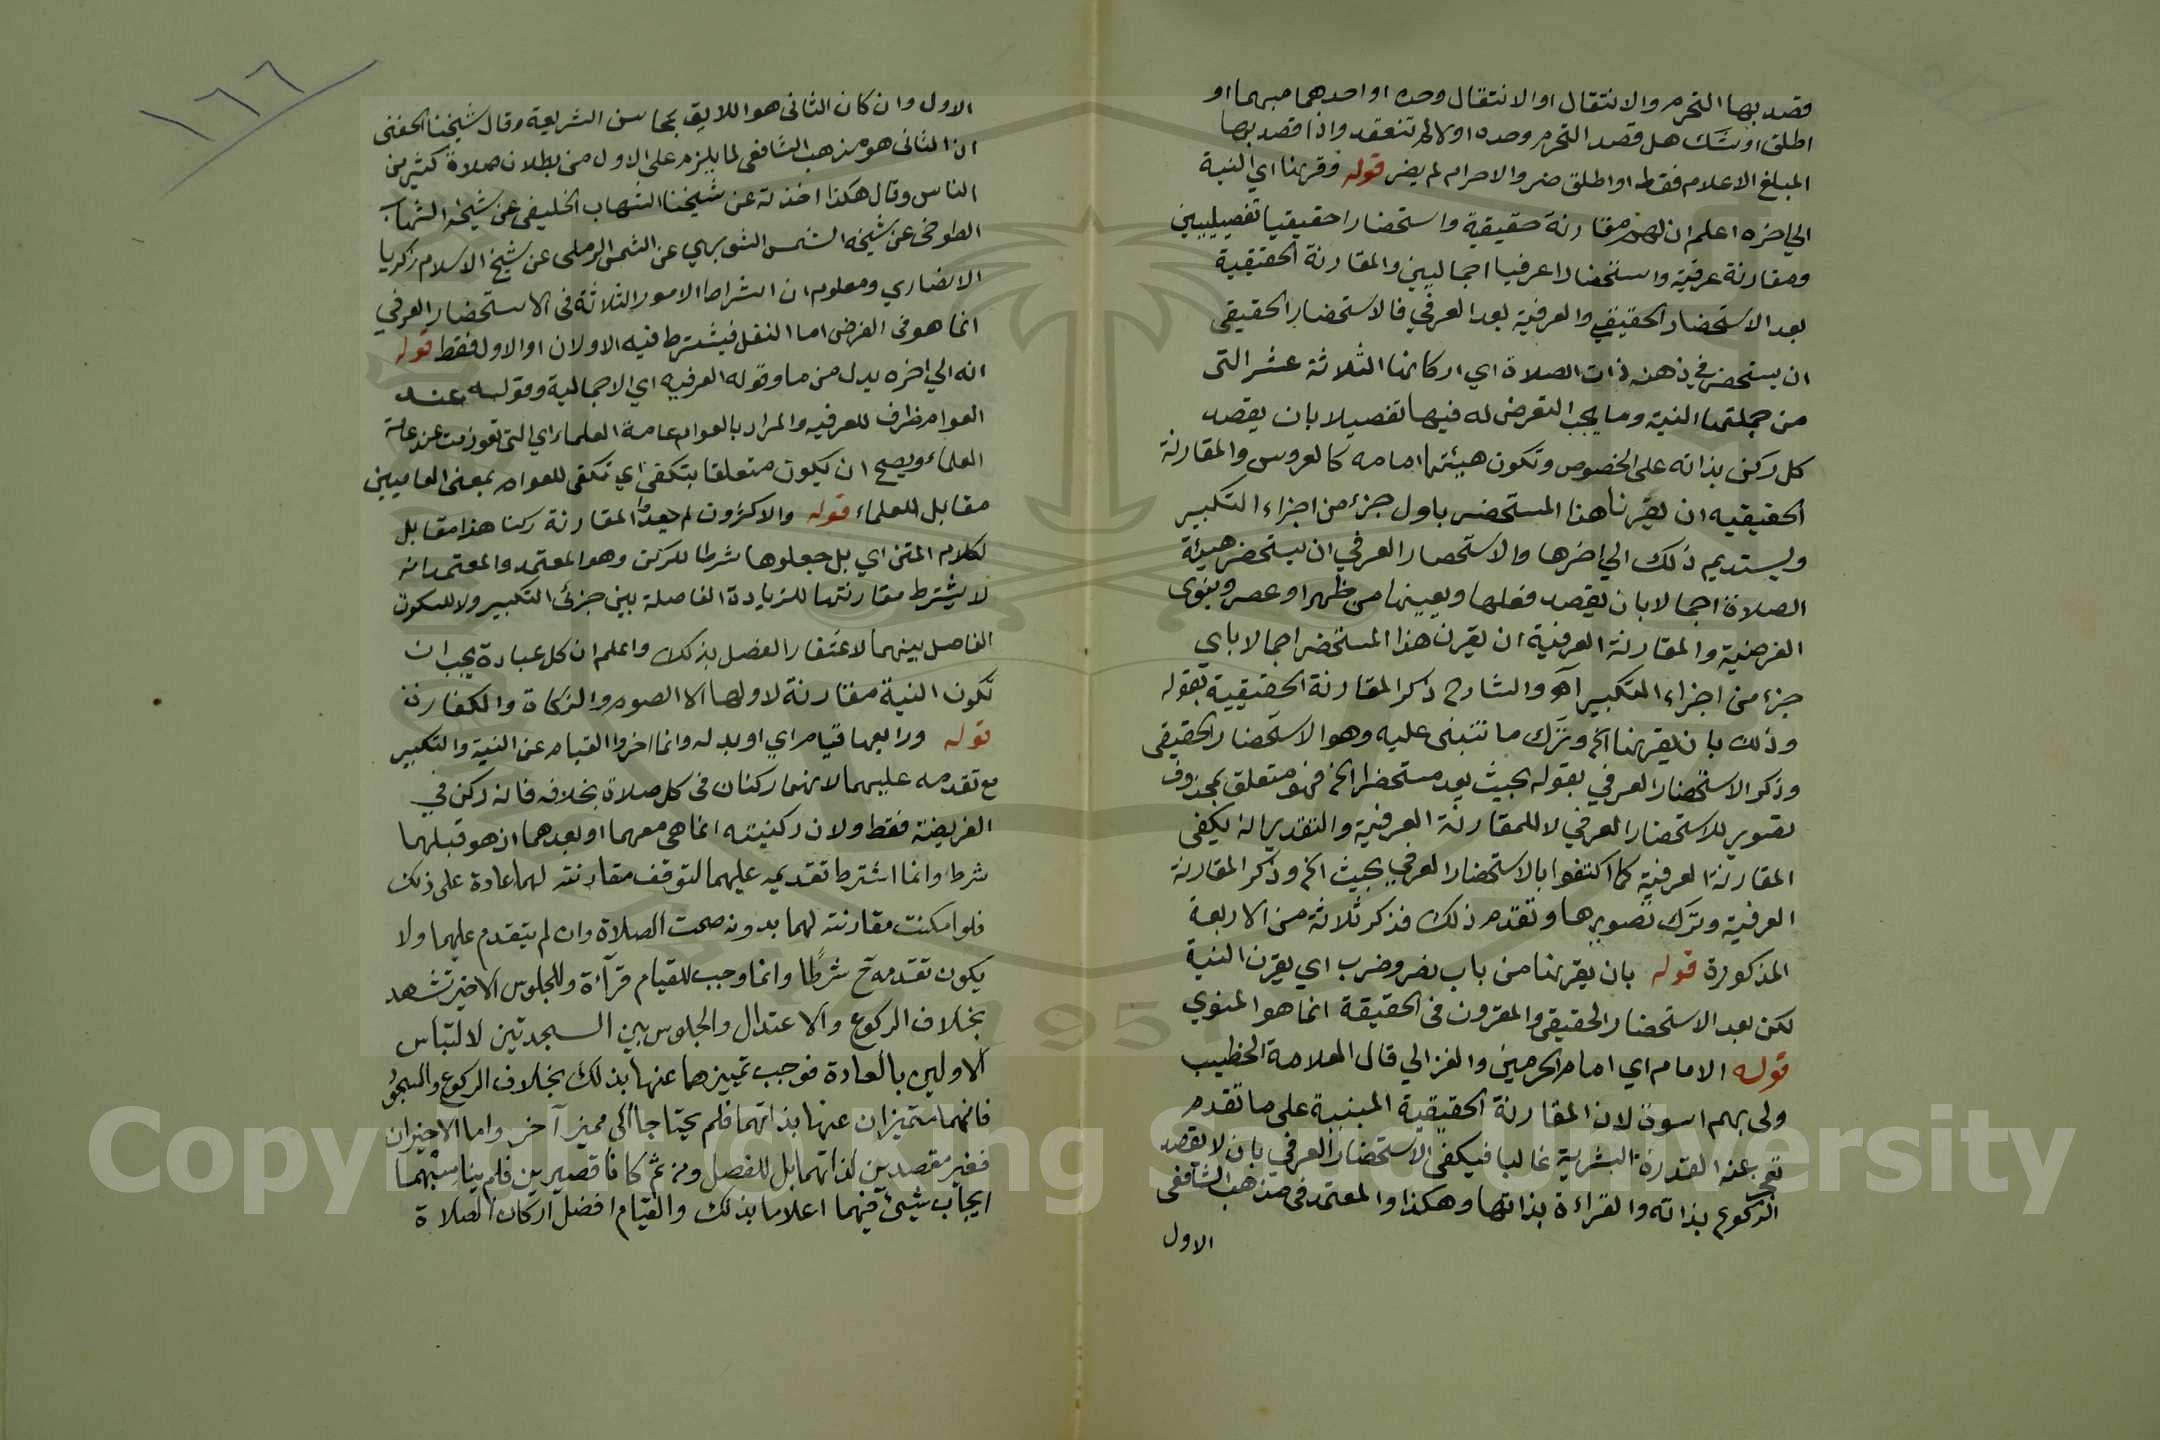 قصد بها التحرم والانتقال او الانتقال وحده او احدهما مبهما او
اطلق او شك هل قصد التحرم وحده او لا لم تنعقد واذا قصد بها
المبلغ الاعلام فقط او اطلق ضر والاحرام لم يضر قوله وقرنها اي النية
الي اخره اعلم ان لهم مقارنة حقيقية واستحضارا حقيقيا تفصيليين
ومقارنة عرفية واستحضارا عرفيا اجماليين والمقارنة الحقيقية
بعد الاستحضار الحقيقي والعرفية بعد العرفي فالاستحضار الحقيقي
ان يستحضر في ذهنه ذات الصلاة اي اركانها الثلاثة عشر التي
من جملتها النية وما يجب التعرض له فيها تفصيلا بان يقصد
كل ركن بذاته على الخصوص وتكون هيئتها امامه كالعروس والمقارنة
الحقيقيه ان يقرن هذا المستحضر باول جزء من اجزاء التكبير
ويستديم ذلك الي اخرها والاستحضار العرفي ان يستحضر هيئة
الصلاة اجمالا بان يقصد فعلها ويعينها من ظهر او عصر وينوى
الفرضية والمقارنة العرفية ان يقرن هذا المستحضر اجمالا باي
جزء من اجزاء التكبير اه والشارح ذكر المقارنة الحقيقية بقوله
وذلك بان يقرنها الخ وترك ما تنبنى عليه وهو الاستحضار الحقيقى
وذكر الاستحضار العرفي بقوله بحيث يعد مستحضرا الخ فهو متعلق بمحذوف
تصوير للاستحضار العرفي لا للمقارنة العرفية والتقدير انه يكفى
المقارنة العرفية كما اكتفوا بالاستحضار العرفي بحيث الخ وذكر المقارنة
العرفية وترك تصويرها وتقدم ذلك فذكر ثلاثة من الاربعة
المذكورة قوله بان يقرنها من باب نصر وضرب اي يقرن النية
لكن بعد الاستحضار الحقيقى والمقرون فى الحقيقة انما هو المنوي
قوله الامام اي امام الحرمين والغزالي قال العلامة الخطيب
ولى بهم اسوة لان المقارنة الحقيقية المبنية على ما تقدم
تعجز عنه القدرة البشرية غالبا فيكفى الاستحضار العرفي بان لا يقصد
الركوع بذاته والقراءة بذاتها وهكذا والمعتمد فى مذهب الشافعى
الاول
١٦٦
الاول وان كان الثانى هو اللايق بمحاسن الشريعة وقال شيخنا الحفنى
ان الثانى هو مذهب الشافعى لما يلزم على الاول من بطلان صلاة كثير من
الناس وقال هكذا اخذته عن شيخنا الشهاب الخليفى عن شيخه الشهاب
الطوخى عن شيخه الشمس الشوبري عن الشمس الرملى عن شيخ الاسلام زكريا
الانصاري ومعلوم ان اشتراط الامور الثلاثة فى الاستحضار العرفي
انما هو فى الفرض اما النفل فيشترط فيه الاولان او الاول فقط قوله
انه الي اخره بدل من ما وقوله العرفيه اي الاجمالية وقوله عند
العوام ظرف للعرفيه والمراد بالعوام عامة العلماء اي التى تعورفت عند عامة
العلماء ويصح ان يكون متعلقا بتكفى اي تكفى للعوام بمعنى العاميين
مقابل للعلماء قوله والاكثرون لم يعدوا المقارنة ركنا هذا مقابل
لكلام المتن اي بل جعلوها شرطا للركن وهو المعتمد والمعتمد انه
لا يشترط مقارنتها للزيادة الفاصلة بين جزئى التكبير ولا للسكون
الفاصل بينهما لاغتفار الفصل بذلك واعلم ان كل عبادة يجب ان
تكون النية مقارنة لاولها الا الصوم والزكاة والكفارة
قوله ورابعها قيام اي او بدله وانما اخروا القيام عن النية والتكبير
مع تقدمه عليهما لانهما ركنان فى كل صلاة بخلافه فانه ركن في
الفريضة فقط ولان ركنيته انما هى معهما او بعدهما اذ هو قبلهما
شرط وانما اشترط تقديمه عليهما لتوقف مقارنته لهما عادة على ذلك
فلو امكنت مقارنته لهما بدونه صحت الصلاة وان لم يتقدم عليهما ولا
يكون تقدمه ح شرطا وانما وجب للقيام قرآءة وللجلوس الاخير تشهد
بخلاف الركوع والاعتدال والجلوس بين السجدتين لالتباس
الاولين بالعادة فوجب تمييزهما عنها بذلك بخلاف الركوع والسجود
فانهما متميزان عنها بذاتهما فلم يحتاجا الى مميز آخر واما الاخيران
فغير مقصدين لذاتهما بل للفصل ومن ثم كانا قصيرين فلم يناسبهما
ايجاب شيئ فيهما اعلاما بذلك والقيام افضل اركان الصلاة
Copyright © King Saud University
1957